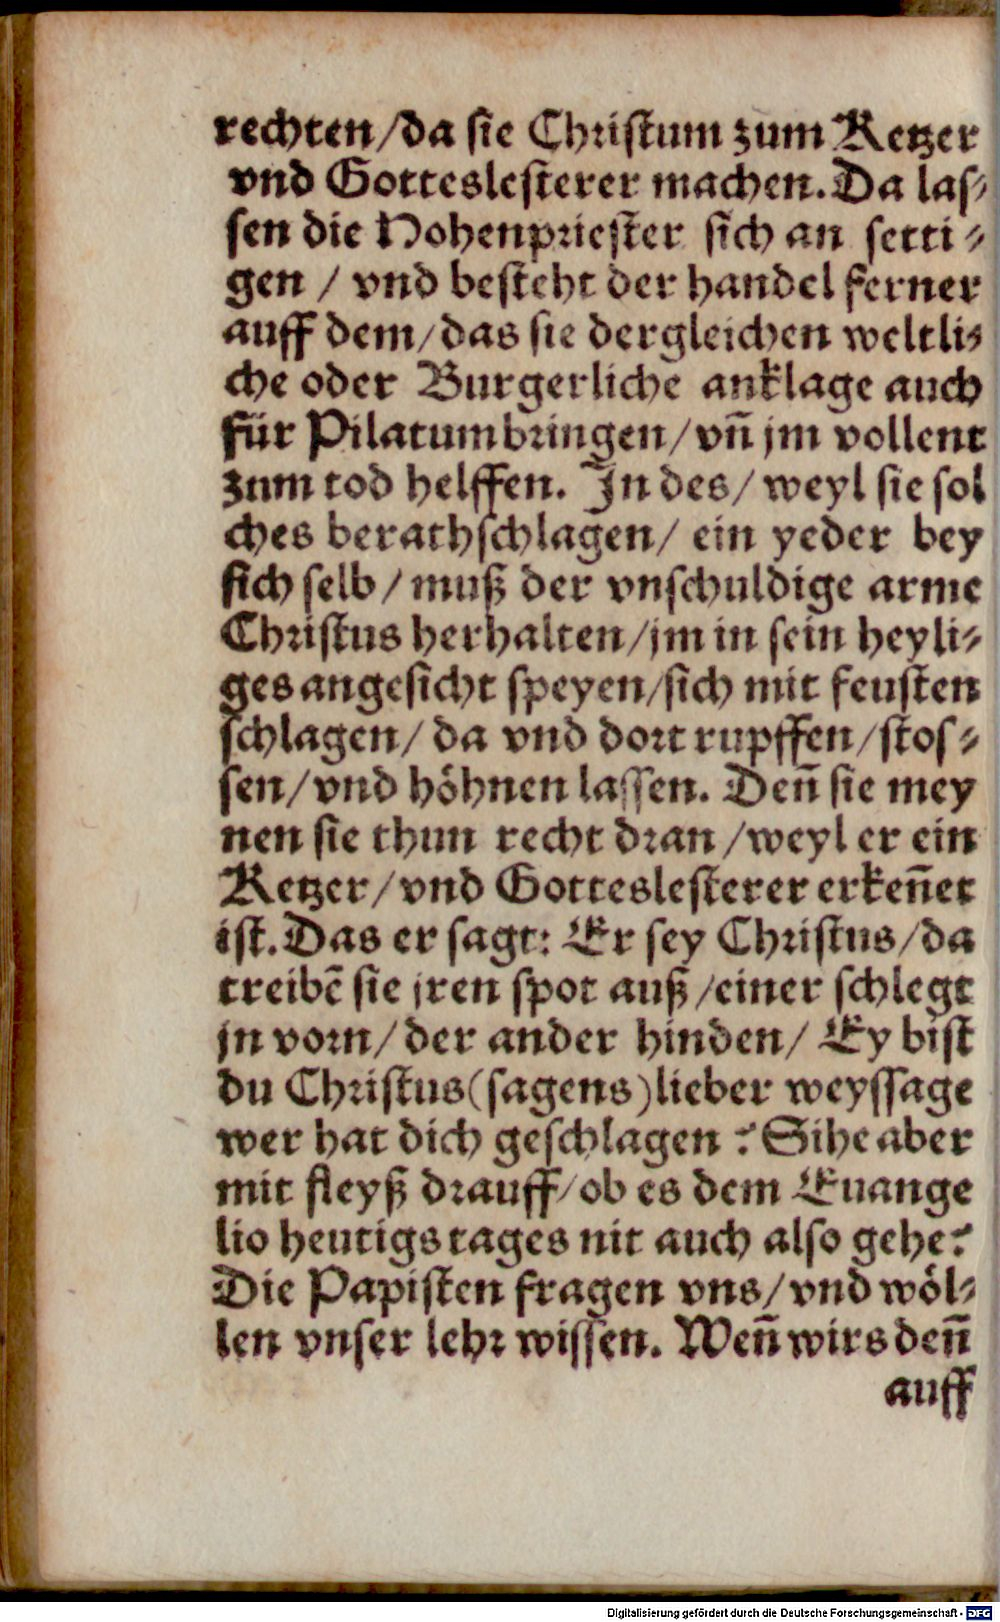 rechten/da sie Christum zum Ketzer
vnd Gotteslesterer machen. Da las⸗
sen die Hohenpriester sich an setti⸗
gen / vnd besteht der handel ferner
auff dem/das sie dergleichen weltli⸗
che oder Burgerliche anklage auch
für Pilatum bringen/vñ jm vollent
zum tod helffen. In des/ weyl sie sol
ches berathschlagen/ ein yeder bey
sich selb/muß der vnschuldige arme
Christus herhalten/jm in sein heyli⸗
ges angesicht speyen/sich mit feusten
schlagen/ da vnd dort rupffen/stos⸗
sen/vnd höhnen lassen. Deñ sie mey
nen sie thun recht dran/weyl er ein
Ketzer/vnd Gotteslesterer erkeñet
ist. Das er sagt: Er sey Christus/da
treibẽ sie jren spot auß/einer schlegt
jn vorn/ der ander hinden/ Ey bist
du Christus(sagens)lieber weyssage
wer hat dich geschlagen? Sihe aber
mit fleyß drauff/ob es dem Euange
lio heutigs tages nit auch also gehe?
Die Papisten fragen vns/vnd wöl⸗
len vnser lehr wissen. Weñ wirs deñ
auff
Digitalisierung gefördert durch die Deutsche Forschungsgemeinschaft - DFG